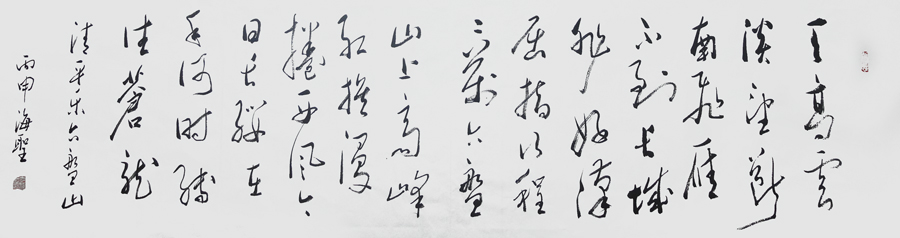 天高雲
淡望断
南飞雁
不到长城
非好漢
屈指行程
二萬六盤
山上高峰
红旗漫
捲西风六
日长缨在
手何时缚
住蒼龙
清平乐六盤山
丙申海聖